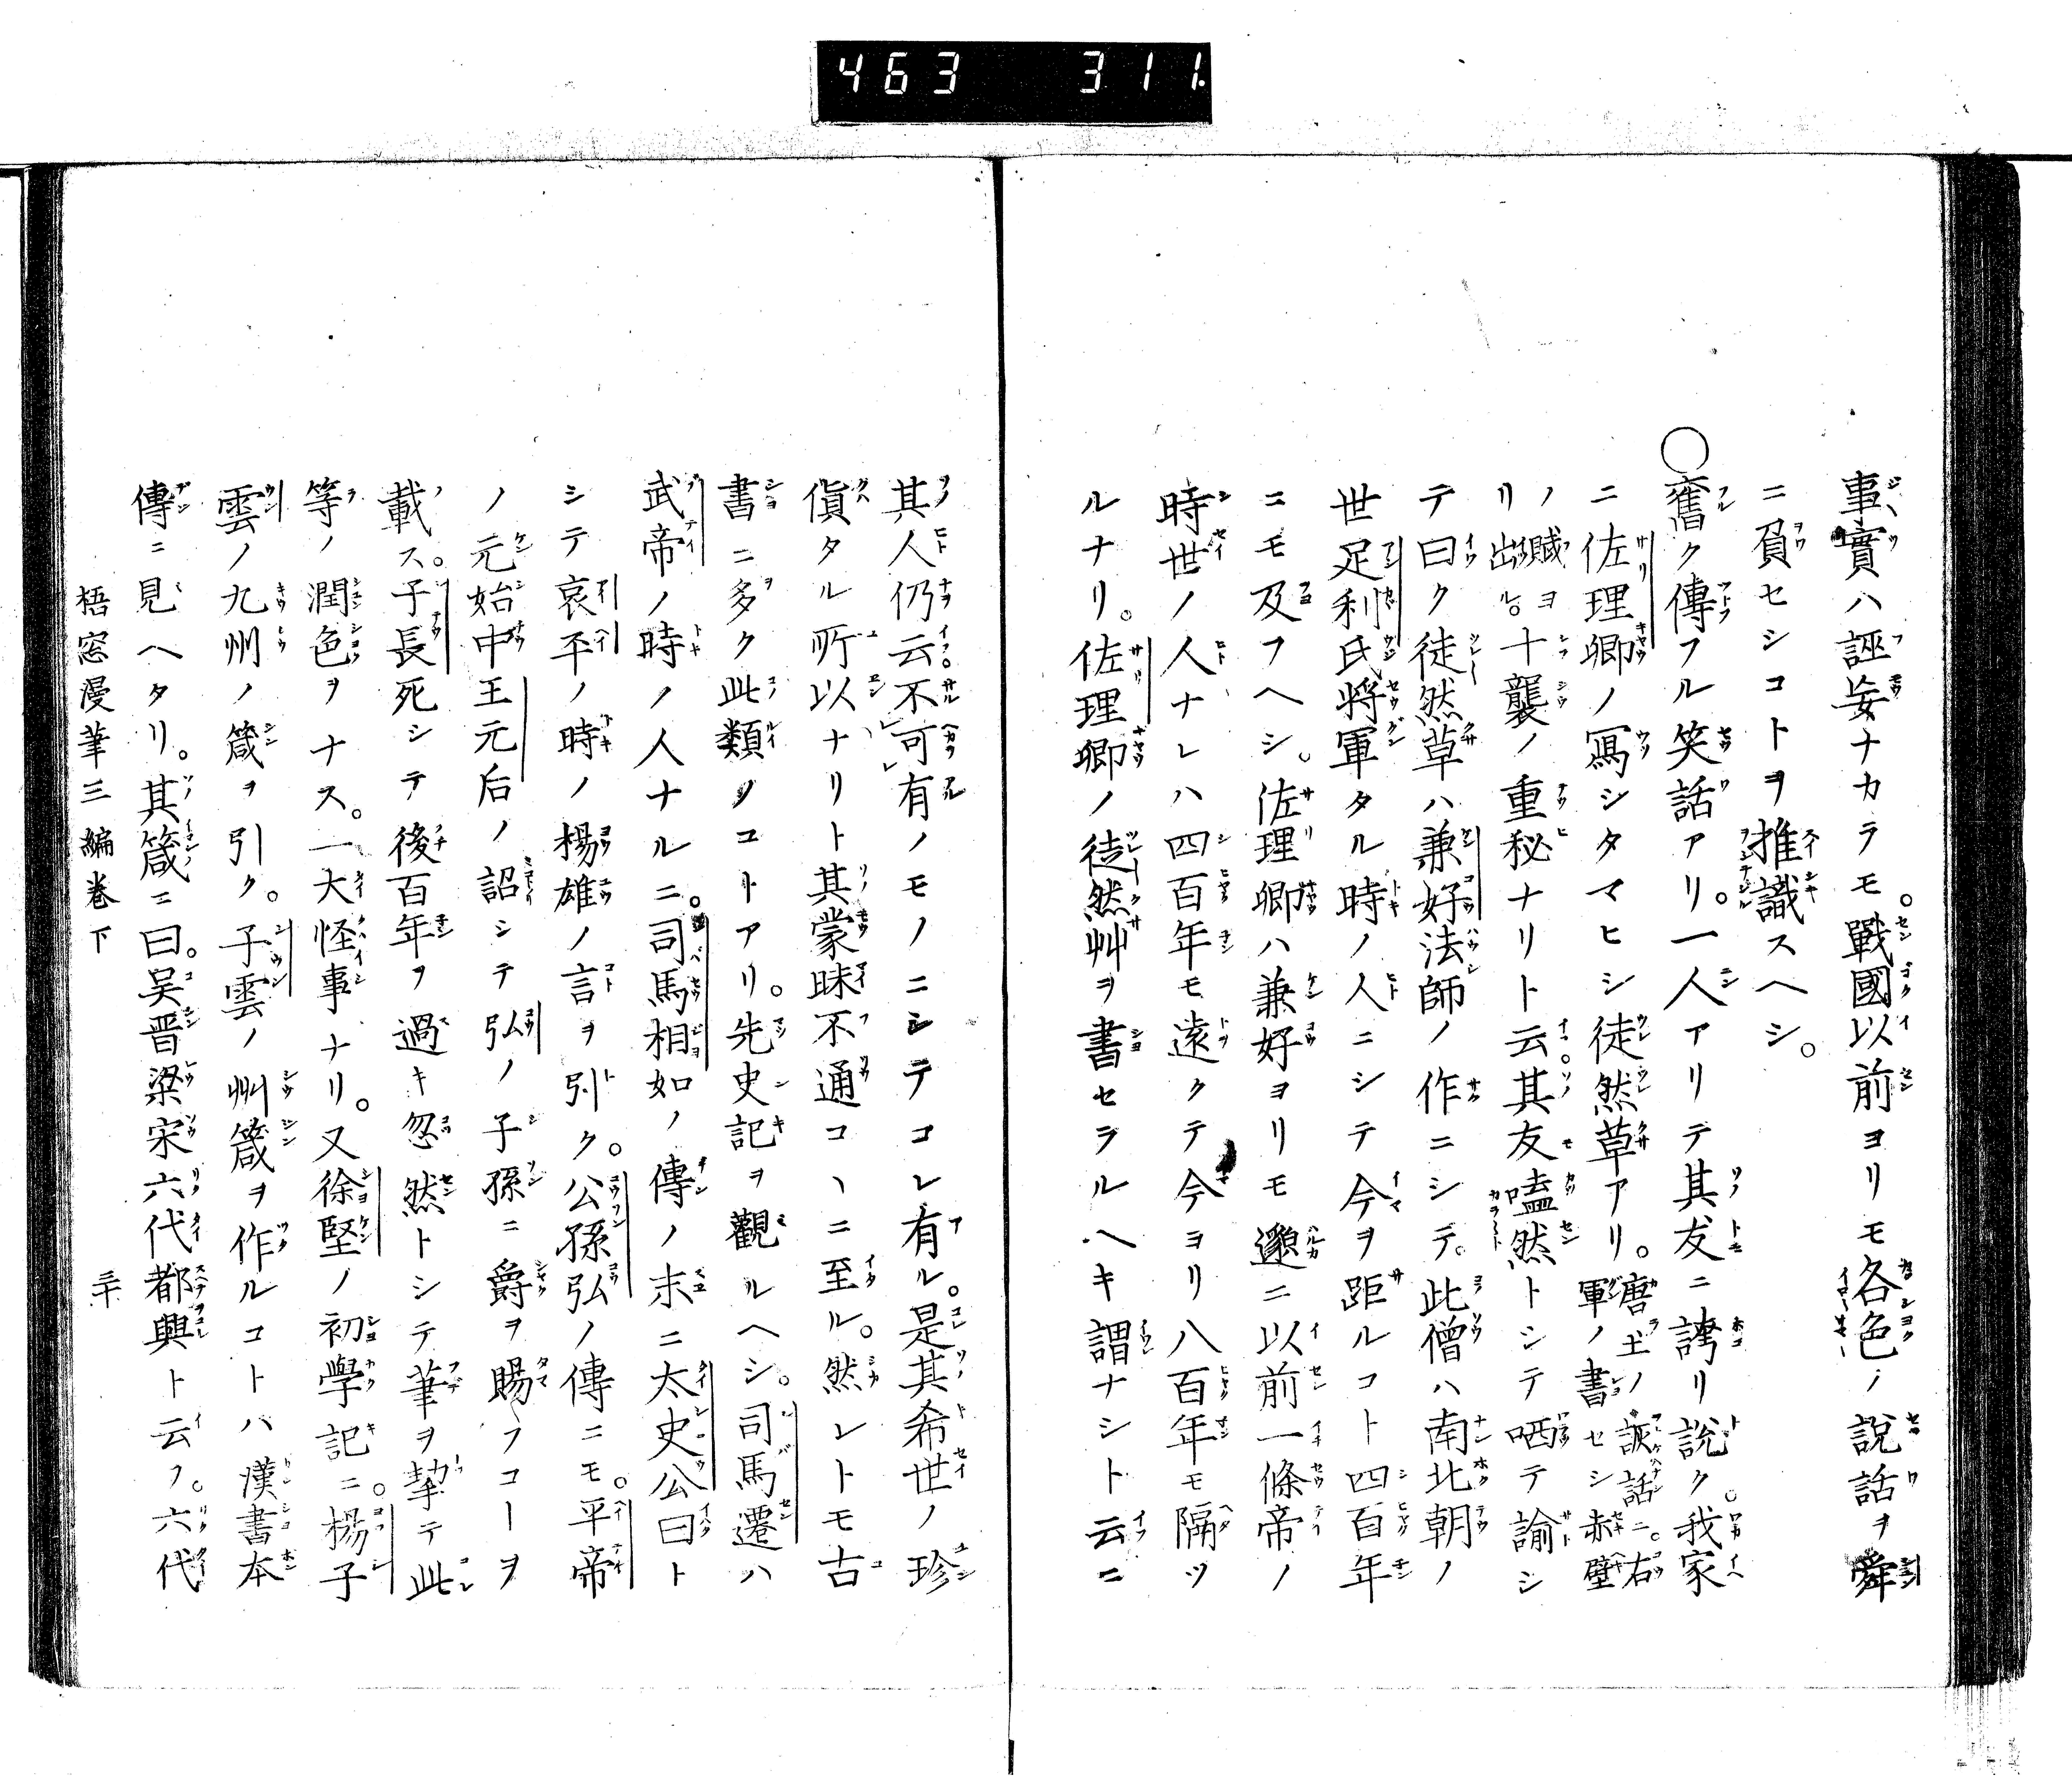 463 311
事實ハ誣妄ナカラモ。戰國以前ヨリモ各色ノ說話ヲ舜
ニ負セシコトヲ推識スヘシ。
〇舊ク傳フル笑話アリ。一人アリテ其友ニ誇リ說ク。我家
ニ佐理卿ノ寫シタマヒシ徒然草アリ。唐土ノ詼話ニ。右軍ノ書セシ赤壁
ノ賦ヨリ出ル。十襲ノ重秘ナリト云。其友嗑然トシテ哂テ諭シ
テ曰ク徒然草ハ兼好法師ノ作ニシテ。此僧ハ南北朝ノ
世足利氏將軍タル時ノ人ニシテ今ヲ距ルコト四百年
ニモ及フヘシ。佐理卿ハ兼好ヨリモ邈ニ以前一條帝ノ
時世ノ人ナレハ四百年モ遠クテ今ヨリ八百年モ隔ツ
ルナリ。佐理卿ノ徒然艸ヲ書セラルヘキ謂ナシト云ニ
其人仍云。不可有ノモノニシテコレ有ル。是其希世ノ珍
貨タル所以ナリト其蒙昧不通コヽニ至ル。然レトモ古
書ニ多ク此類ノコトアリ。先史記ヲ觀ルヘシ。司馬遷ハ
武帝ノ時ノ人ナルニ。司馬相如ノ傳ノ末ニ太史公曰ト
シテ哀平ノ時ノ楊雄ノ言ヲ引ク。公孫弘ノ傳ニモ。平帝
ノ元始中王元后ノ詔シテ弘ノ子孫ニ爵ヲ賜フコーヲ
載ス。子長死シテ後百年ヲ過キ忽然トシテ筆ヲ挚テ此
等ノ潤色ヲナス。一大怪事ナリ。又徐堅ノ初學記ニ。楊子
雲ノ九州ノ箴ヲ引ク。子雲ノ州箴ヲ作ルコトハ漢書本
傳ニ見ヘタリ。其箴ニ曰。吴晋梁宋六代都興ト云フ。六代
梧窓漫筆三編卷下 三十